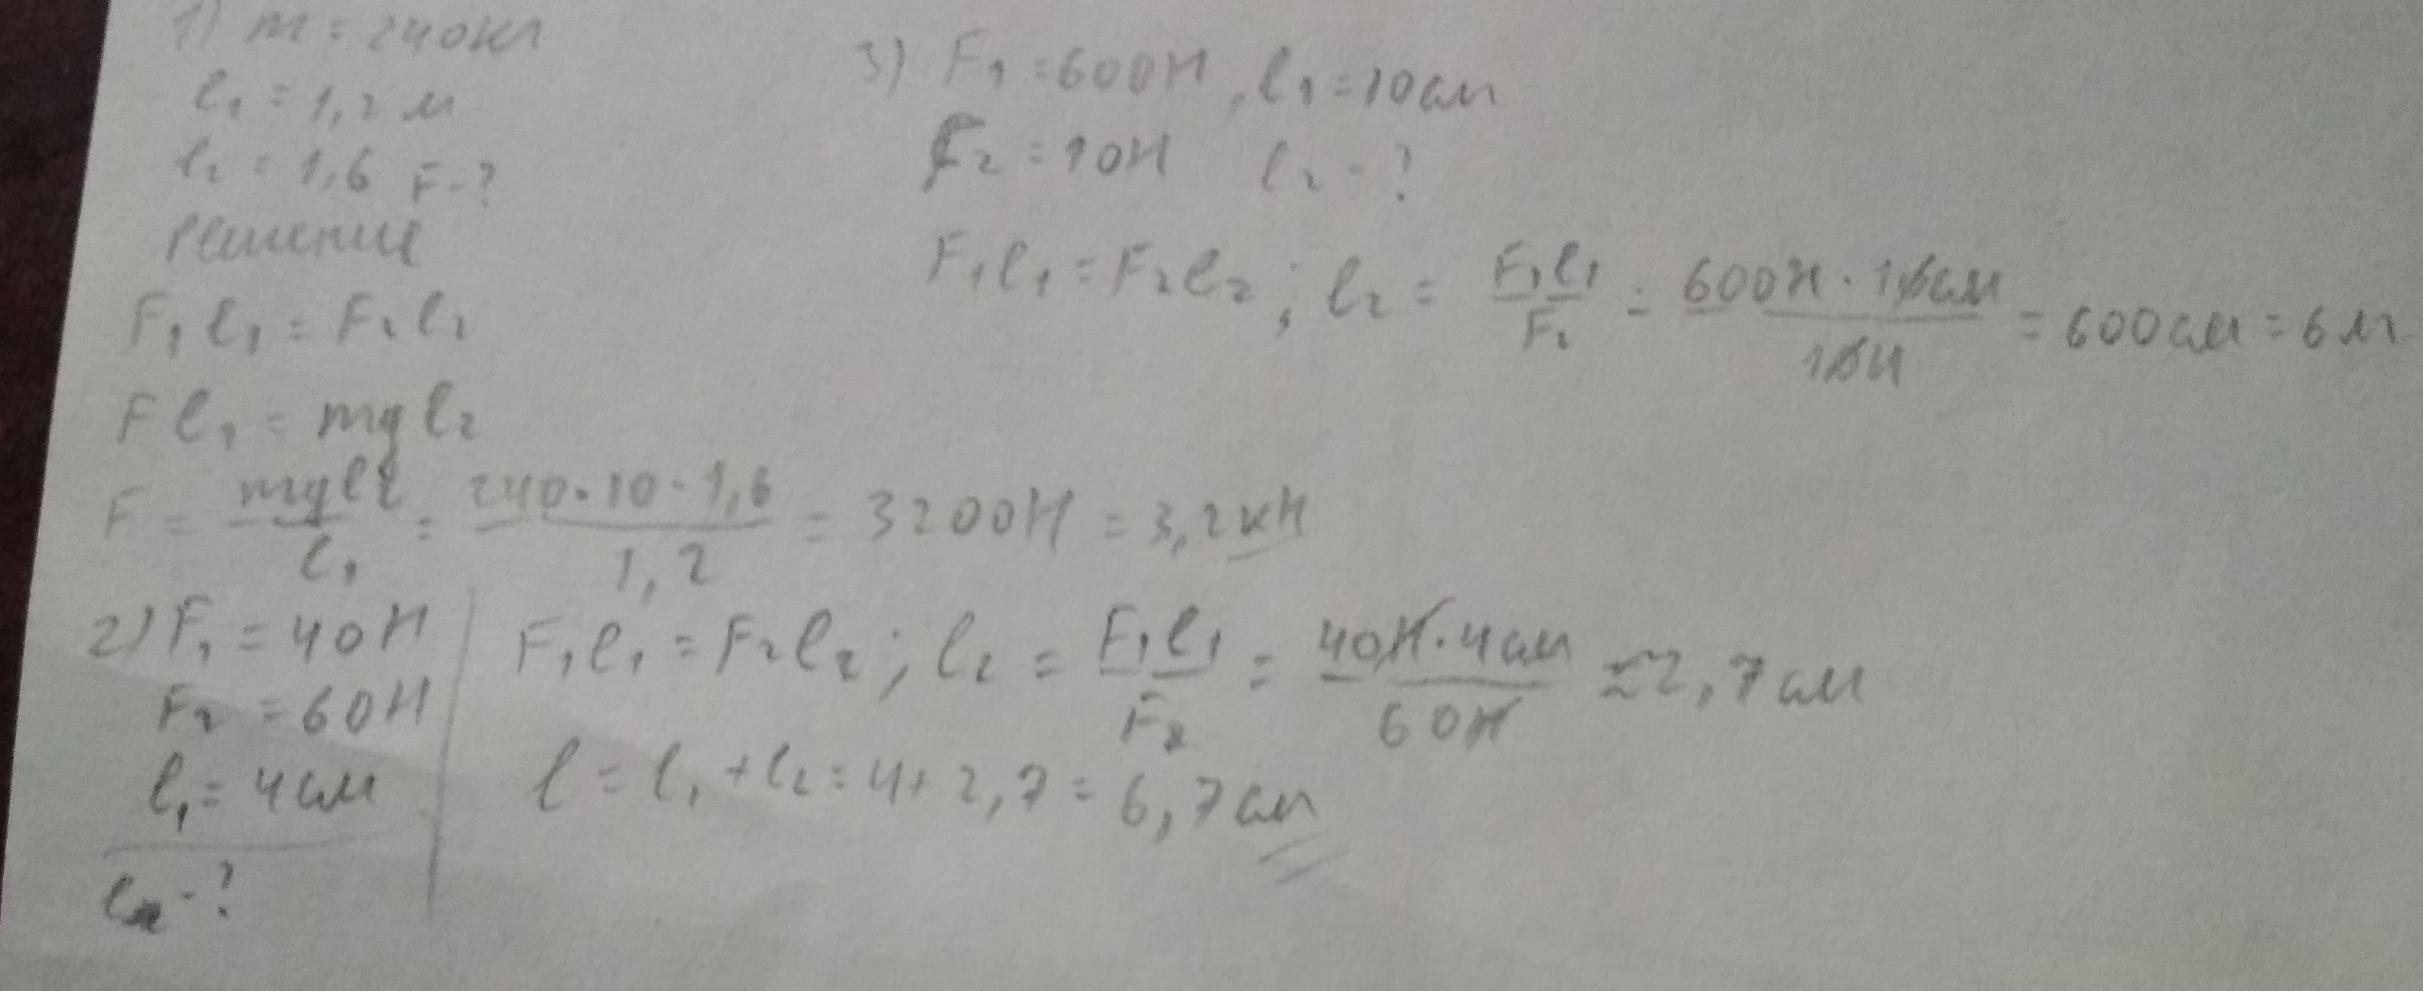 1) m = 240кг
l₁ = 1,2 м
l₂ = 1,6 F - ?
Решение
F₁l₁ = F₂l₂
Fl₁ = mgl₂
F = mgl₂/l₁ = 240·10·1,6/1,2 = 3200Н = 3,2кН
2) F₁ = 40Н
F₂ = 60Н
l₁ = 4см
l - ?
F₁l₁ = F₂l₂; l₂ = F₁l₁/F₂ = 40Н·4см/60Н ≈ 2,7см
l = l₁ + l₂ = 4 + 2,7 = 6,7см
3) F₁ = 600Н, l₁ = 10см
F₂ = 10Н l₂ - ?
F₁l₁ = F₂l₂; l₂ = F₁l₁/F₂ = 600Н·10см/10Н = 600см = 6м